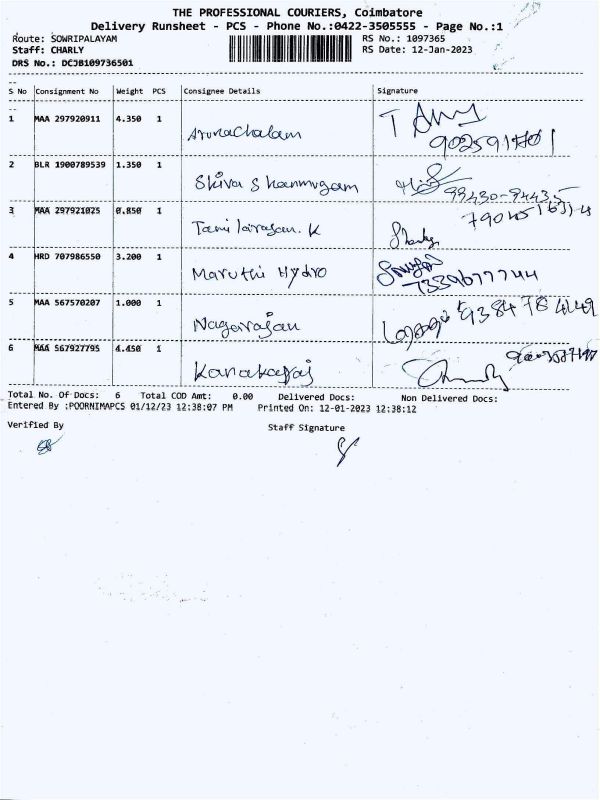 THE PROFESSIONAL COURIERS, Coimbatore
Delivery Runsheet - PCS - Phone No.:0422-3505555 - Page No.:1
Route: SOWRIPALAYAM RS No.: 1097365
Staff: CHARLY RS Date: 12-Jan-2023
DRS No.: DCJB109736501
S No Consignment No Weight PCS Consignee Details Signature
1 MAA 297920911 4.350 1 Arunachalam
2 BLR 1900789539 1.350 1 Shiva Shanmugam
3 MAA 297921025 0.850 1 Tamilarasan. K
4 HRD 707986550 3.200 1 Maruthi Hydro 7339677744
5 MAA 567570207 1.000 1 Nagarajan
6 MAA 567927795 4.450 1 Kanakaraj
Total No. Of Docs: 6 Total COD Amt: 0.00 Delivered Docs: Non Delivered Docs:
Entered By :POORNIMAPCS 01/12/23 12:38:07 PM Printed On: 12-01-2023 12:38:12
Verified By Staff Signature